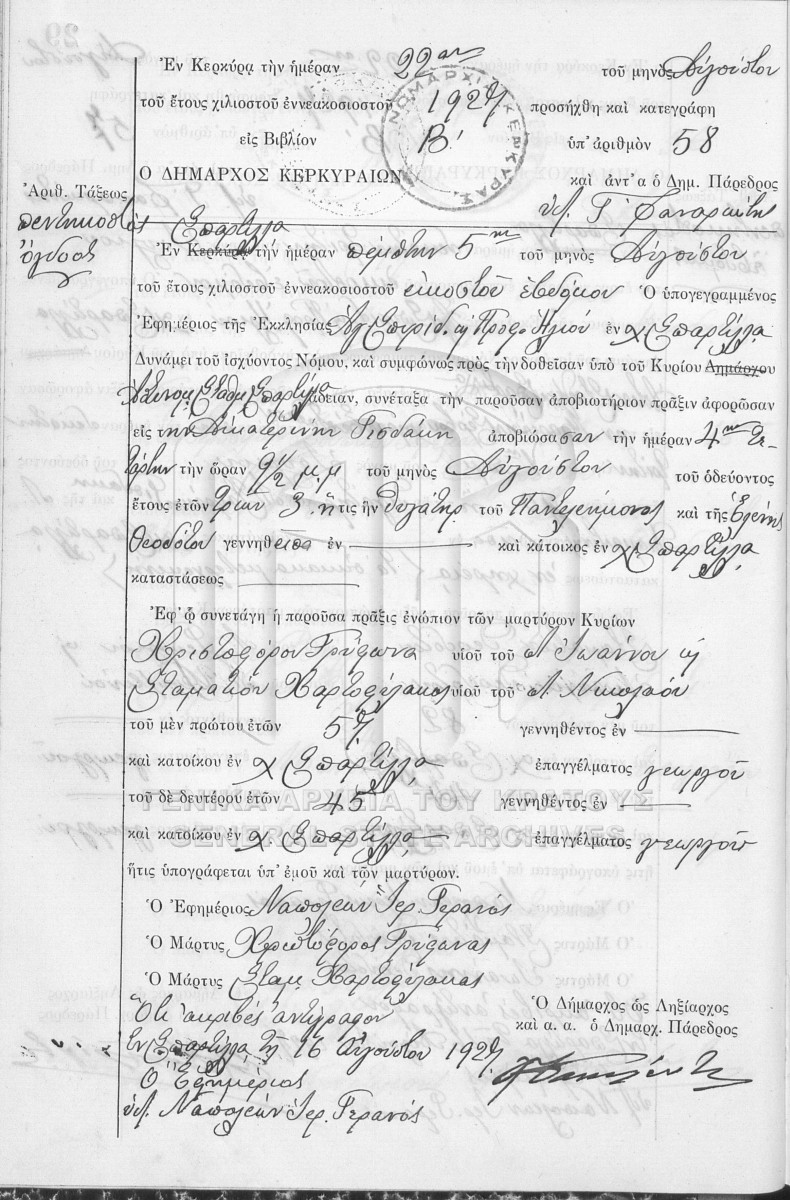 Ἐν Κερκύρᾳ τὴν ἡμέραν 22αν τοῦ μηνὸς Αὐγούστου
τοῦ ἔτους χιλιοστοῦ ἐννεακοσιοστοῦ 1927 προσήχθη καὶ κατεγράφη
εἰς Βιβλίον Β΄ ὑπ' ἀριθμὸν 58
Ο ΔΗΜΑΡΧΟΣ ΚΕΡΚΥΡΑΙΩΝ καὶ ἀντ' α ὁ Δημ. Πάρεδρος
ΝΟΜΑΡΧΙ ΚΕΡΚΥΡΑΣ
Ἀριθ. Τάξεως
πεντηκοστὸς
ὄγδοος
Σπαρτύλλα
Ἐν Κερκύρᾳ τὴν ἡμέραν πέμπτην 5ην τοῦ μηνὸς Αὐγούστου
τοῦ ἔτους χιλιοστοῦ ἐννεακοσιοστοῦ εἰκοστοῦ ἑβδόμου Ὁ ὑπογεγραμμένος
Ἐφημέριος τῆς Ἐκκλησίας Ἁγ Σπυρίδ. ἐν χ Σπαρτύλλα
Δυνάμει τοῦ ἰσχύοντος Νόμου, καὶ συμφώνως πρὸς τὴν δοθεῖσαν ὑπὸ τοῦ Κυρίου Δημάρχου
Ἀστυνομ. Σταθμ. Σπαρτύλλα ἄδειαν, συνέταξα τὴν παροῦσαν ἀποβιωτήριον πρᾶξιν ἀφορῶσαν
εἰς τὴν Αἰκατερίνην ἀποβιώσασαν τὴν ἡμέραν 4ην Τε-
τάρτην τὴν ὥραν 9 1/2 μ.μ τοῦ μηνὸς Αὐγούστου τοῦ ὁδεύοντος
ἔτους ἐτῶν τριῶν 3. ἥτις ἦν θυγάτηρ τοῦ Παντελεήμονος καὶ τῆς Ἑλένης
Θεοδότου γεννηθεῖσα ἐν καὶ κάτοικος ἐν χ Σπαρτύλλα
καταστάσεως
Ἐφ' ᾧ συνετάγη ἡ παροῦσα πρᾶξις ἐνώπιον τῶν μαρτύρων Κυρίων
Χριστοφόρου Γρύφωνα υἱοῦ τοῦ Ἰωάννου
Σταματίου Χαρτοφύλακος υἱοῦ τοῦ Νικολάου
τοῦ μὲν πρώτου ἐτῶν 57 γεννηθέντος ἐν
καὶ κατοίκου ἐν χ Σπαρτύλλα ἐπαγγέλματος γεωργοῦ
τοῦ δὲ δευτέρου ἐτῶν 45 γεννηθέντος ἐν
ΓΕΝΙΚΑ ΑΡΧΕΙΑ ΤΟΥ ΚΡΑΤΟΥΣ
καὶ κατοίκου ἐν χ. Σπαρτύλλα ἐπαγγέλματος γεωργοῦ
GENERAL STATE ARCHIVES
ἥτις ὑπογράφεται ὑπ' ἐμοῦ καὶ τῶν μαρτύρων.
Ὁ Ἐφημέριος Ναπολεὼν Ἱερ. Γερανός
Ὁ Μάρτυς Χριστόφορος Γρύφωνας
Ὁ Μάρτυς Σταμ. Χαρτοφύλακας
Ὅτι ἀκριβὲς ἀντίγραφον
Ὁ Δήμαρχος ὡς Ληξίαρχος
καὶ α. α. ὁ Δημαρχ. Πάρεδρος
Ἐν Σπαρτύλλα τῇ 16 Αὐγούστου 1927
Ὁ Ἐφημέριος
Ναπολεὼν Ἱερ. Γερανός